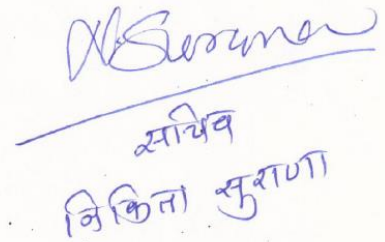 N. Surana
सचिव
निकिता सुराणा